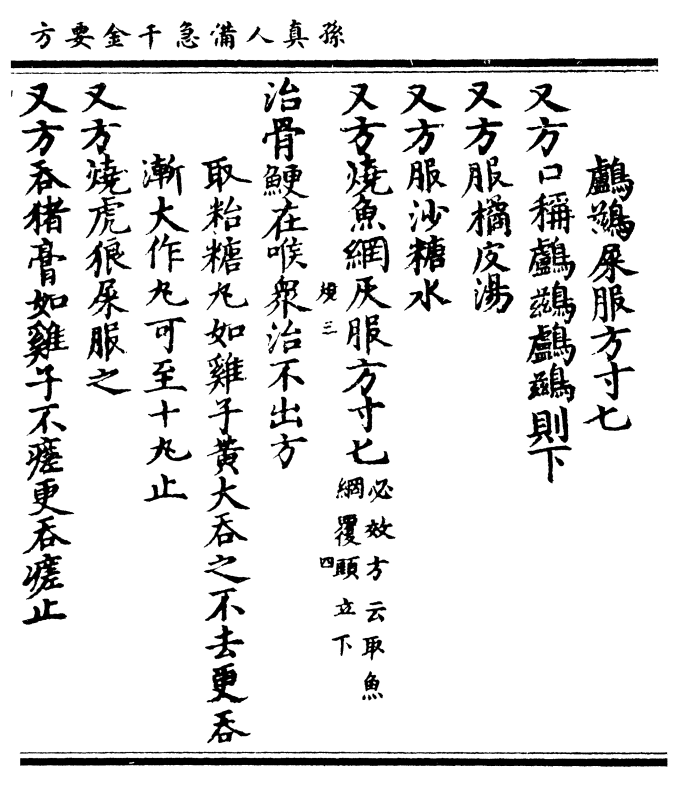 孫真人備急千金要方
鸕鷀屎服方寸匕
又方口稱鸕鷀鸕鷀則下
又方服橘皮湯
又方服沙糖水
又方燒魚網灰服方寸匕必效方云取魚網覆頭立下
治骨鯁在喉衆治不出方
取粭糖丸如雞子黃大吞之不去更吞
漸大作丸可至十丸止
又方燒虎狼屎服之
又方吞猪膏如雞子不瘥更吞瘥止